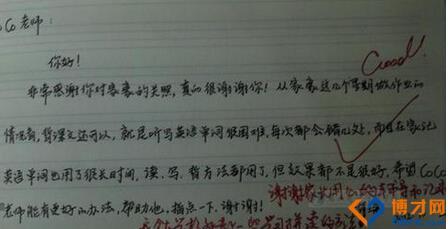 CoCo老师:
你好!
Good!
非常感谢你对家豪的关照,真的很谢谢你!从家豪这几个星期做作业的
情况看,背课文还可以,就是听写英语单词很困难,每次都会错几处,而且在家记
英语单词也用了很长时间,读、写、背方法都用了,但效果都不是很好,希望CoCo
老师能有更好的办法,帮助他,指点一下,谢谢!
谢谢家长用心的
博才网